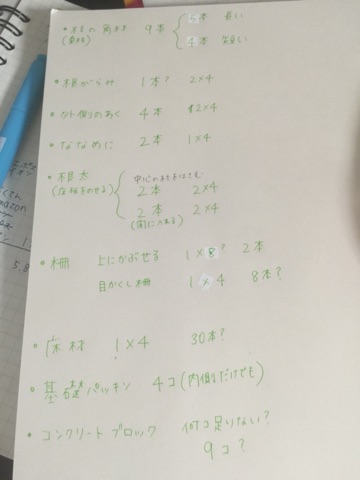 ・柱の角材 9本 5本 長い
(束柱) 4本 短い
・根がらみ 1本? 2×4
・外側のわく 4本 2×4
・ななめに 2本 1×4
・根太 中心の柱をはさむ
(床板をのせる) 2本 2×4
2本 2×4
(間に入れる)
・柵 上にかぶせる 1×8? 2本
目かくし柵 1×4 8本?
・床材 1×4 30本?
・基礎パッキン 4コ(内側だけでも)
・コンクリートブロック 何コ足りない?
9コ?
amazon
5.8